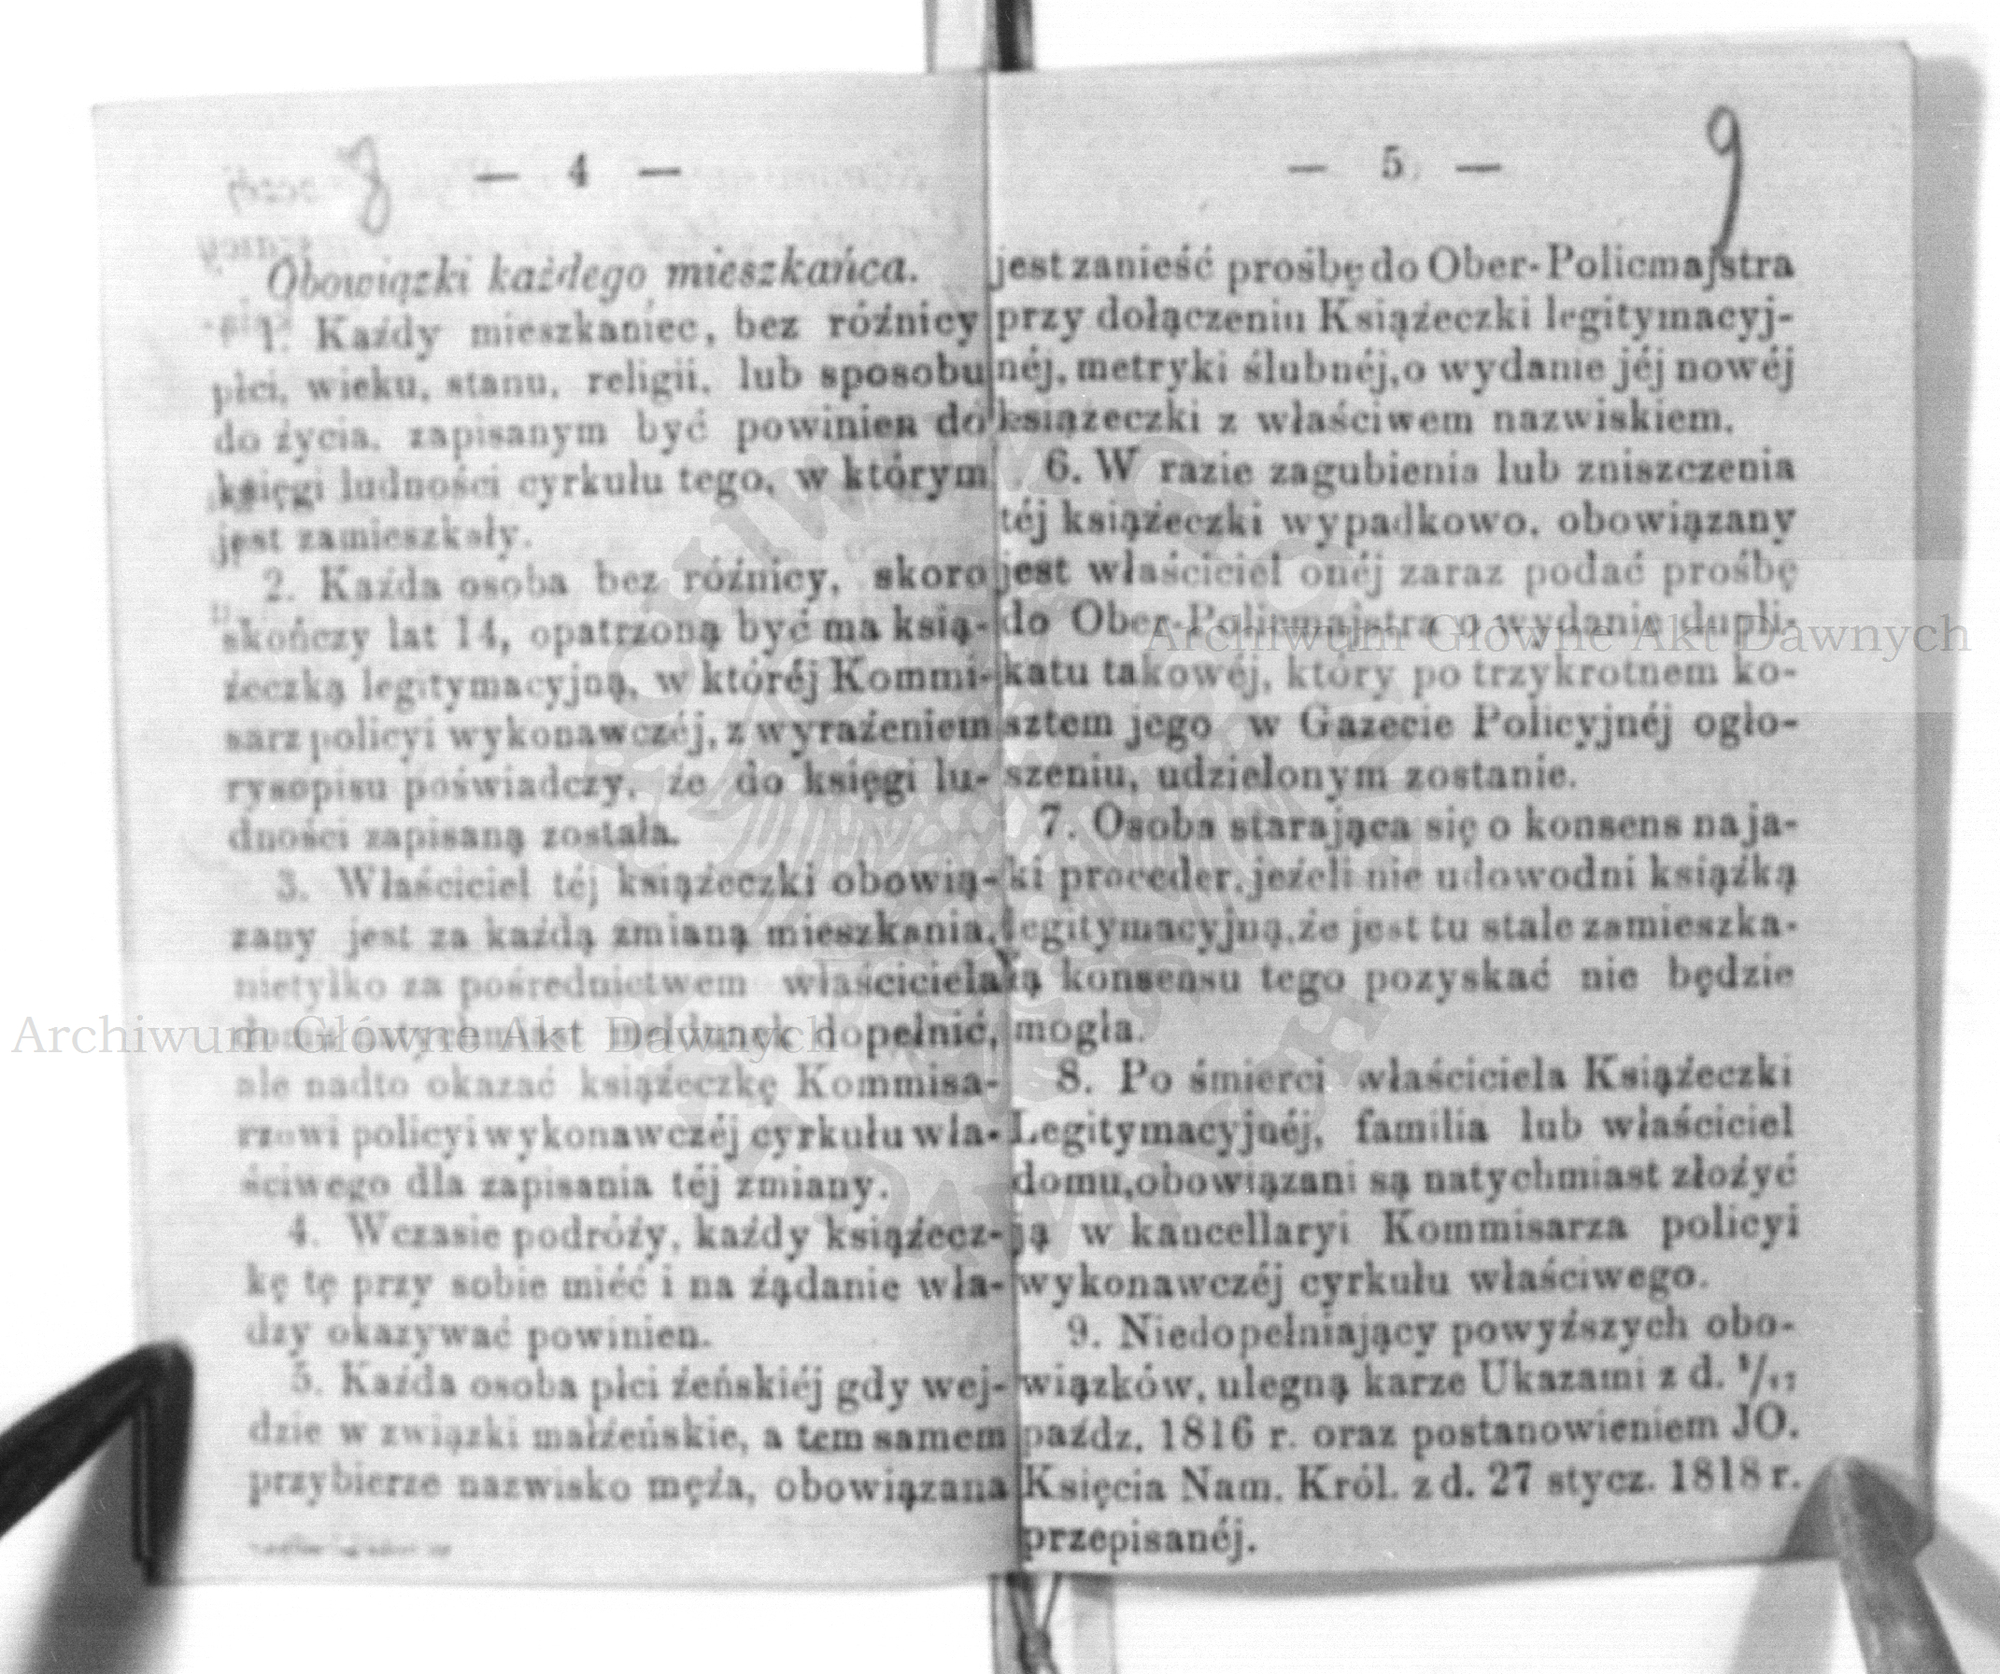 8
— 4 —
Obowiązki każdego mieszkańca.
1. Każdy mieszkaniec, bez różnicy
płci, wieku, stanu, religii, lub sposobu
do życia, zapisanym być powinien do
księgi ludności cyrkułu tego, w którym
jest zamieszkały.
2. Każda osoba bez różnicy, skoro
skończy lat 14, opatrzoną być ma ksią-
żeczką legitymacyjną, w któréj Kommi-
sarz policyi wykonawczéj, z wyrażeniem
rysopisu poświadczy, że do księgi lu-
dności zapisaną została.
3. Właściciel téj książeczki obowią-
zany jest za każdą zmianą mieszkania,
nietylko za pośrednictwem właściciela
domu natychmiast meldunek dopełnić,
ale nadto okazać książeczkę Kommisa-
rzowi policyi wykonawczéj cyrkułu wła-
ściwego dla zapisania téj zmiany.
4. Wczasie podróży, każdy książecz-
kę tę przy sobie miéć i na żądanie wła-
dzy okazywać powinien.
5. Każda osoba płci żeńskiéj gdy wej-
dzie w związki małżeńskie, a tem samem
przybierze nazwisko męża, obowiązana
9
— 5 —
jest zanieść prośbę do Ober-Policmajstra
przy dołączeniu Książeczki legitymacyj-
néj, metryki ślubnéj, o wydanie jéj nowéj
książeczki z właściwem nazwiskiem.
6. W razie zagubienia lub zniszczenia
téj książeczki wypadkowo, obowiązany
jest właściciel onéj zaraz podać prośbę
do Ober-Policmajstra o wydanie dupli-
katu takowéj, który po trzykrotnem ko-
sztem jego w Gazecie Policyjnéj ogło-
szeniu, udzielonym zostanie.
7. Osoba starająca się o konsens na ja-
ki proceder, jeżeli nie udowodni książką
legitymacyjną, że jest tu stale zamieszka-
łą konsensu tego pozyskać nie będzie
mogła.
8. Po śmierci właściciela Książeczki
Legitymacyjnéj, familia lub właściciel
domu, obowiązani są natychmiast złożyć
ją w kancellaryi Kommisarza policyi
wykonawczéj cyrkułu właściwego.
9. Niedopełniający powyższych obo-
wiązków, ulegną karze Ukazami z d.
paźdz. 1816 r. oraz postanowieniem JO.
Księcia Nam. Król. z d. 27 stycz. 1818 r.
przepisanéj.
Archiwum Główne Akt Dawnych
Archiwum Główne Akt Dawnych